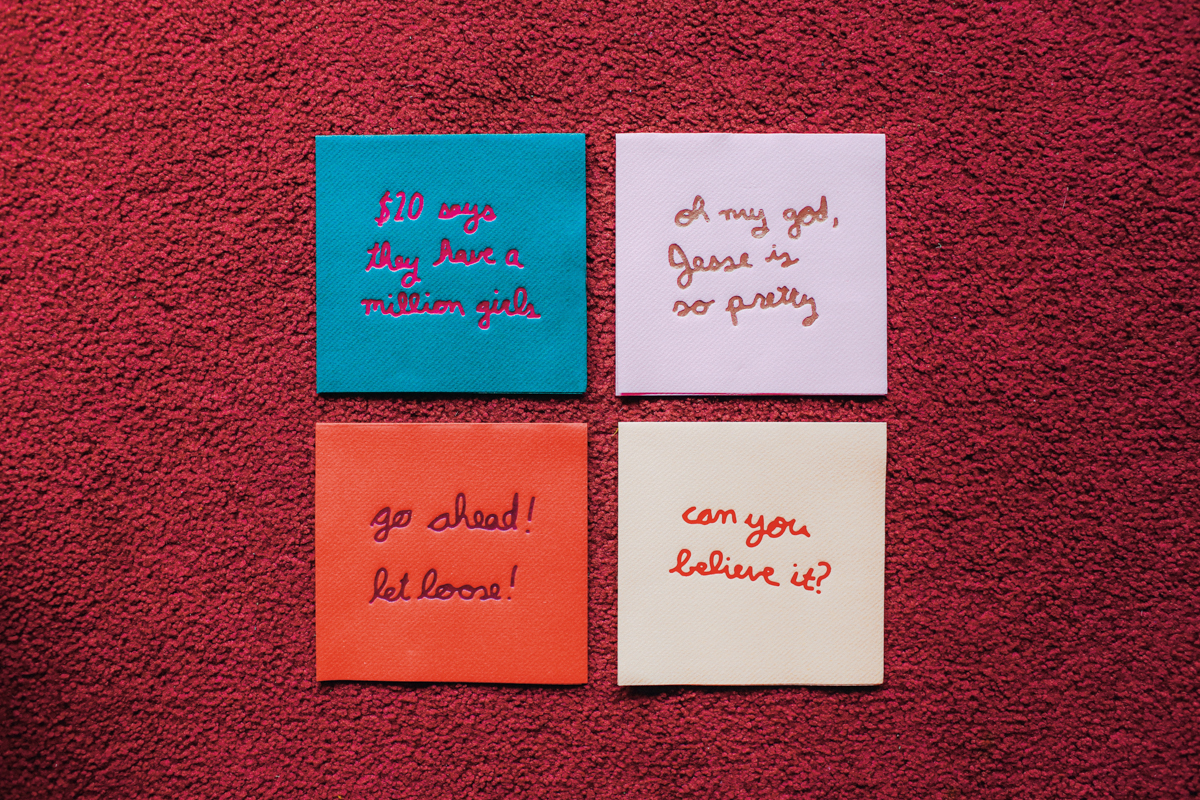 $20 says
they have a
million girls
oh my god,
Jesse is
so pretty
go ahead!
let loose!
can you
believe it?